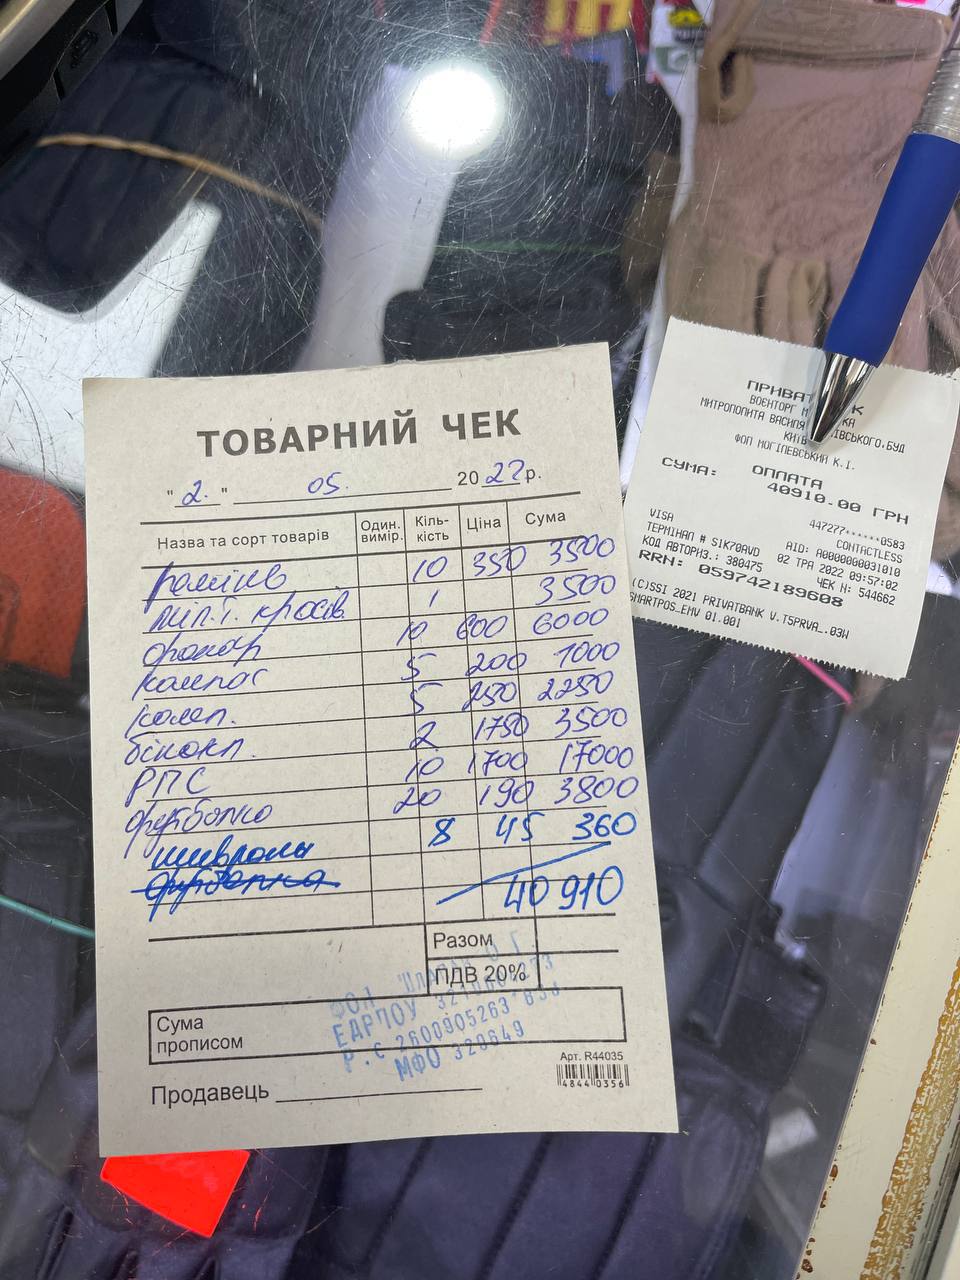 ТОВАРНИЙ ЧЕК
"2." 05. 2022р.
Назва та сорт товарів Один. вимір. Кіль-кість Ціна Сума
10 350 3500
1 3500
10 600 6000
компас 5 200 1000
5 250 2250
бінокл. 2 1750 3500
РПС 10 1700 17000
футболка 20 190 3800
шеврони 8 45 360
футболка
40 910
Разом
ПДВ 20%
Сума
прописом
ФОП
ЕДРПОУ
Р.С 2600905263
МФО 320649
Арт. R44035
4844 0356
Продавець
ВОЄНТОРГ
МИТРОПОЛИТА ВАСИЛЯ ІВСЬКОГО,БУД
КИЇВ
ФОП МОГІЛЕВСЬКИЙ К.І.
ОПЛАТА
СУМА: 40910.00 ГРН
VISA 447277******0583
CONTACTLESS
ТЕРМІНАЛ # S1K70AVD AID: A0000000031010
КОД АВТОРИЗ.: 380475 02 ТРА 2022 09:57:02
ЧЕК N: 544662
RRN: 059742189608
(C)SSI 2021 PRIVATBANK V.T5PRVA_.03W
SMARTPOS_EMV 01.001